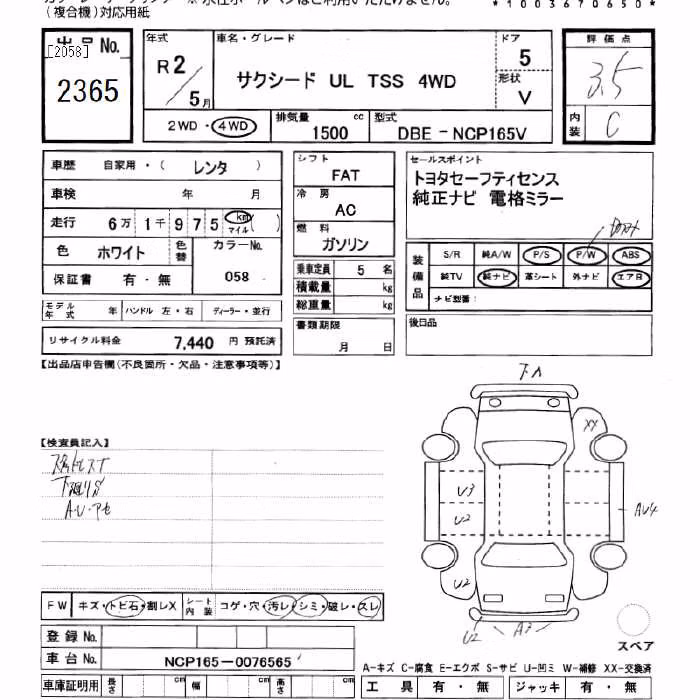 (複合機)対応用紙
*1003670650*
出品 No.
[2058]
2365
年式 車名・グレード ドア 評価点
R2/5月 サクシード UL TSS 4WD 5 3.5
形状 V
2WD・4WD 排気量 1500 cc 型式 DBE-NCP165V 内装 C
車歴 自家用・(レンタ)
車検 年 月
走行 6万1千975 km マイル ( )
色 ホワイト 色替 カラーNo. 058
保証書 有・無
モデル年式 年 ハンドル 左・右 ディーラー・並行
リサイクル料金 7,440 円 預託済
シフト FAT
冷房 AC
燃料 ガソリン
乗車定員 5 名
積載量 kg
総重量 kg
書類期限
月 日
セールスポイント
トヨタセーフティセンス
純正ナビ 電格ミラー
装備品 S/R 純A/W P/S P/W ABS
純TV 純ナビ 革シート 外ナビ エアB
ナビ型番:
後日品
【出品店申告欄(不良箇所・欠品・注意事項等)】
下A
XX
【検査員記入】
U3
U2
AU4
U2
U2 A3
FW キズ・トビ石・割レX シート内装 コゲ・穴・汚レ・シミ・破レ・スレ
登録 No.
車台 No. NCP165-0076565
スペア
A-キズ C-腐食 E-エクボ S-サビ U-凹ミ W-補修 XX-交換済
車庫証明用 長さ cm 幅 cm 高さ cm 工具 有・無 ジャッキ 有・無